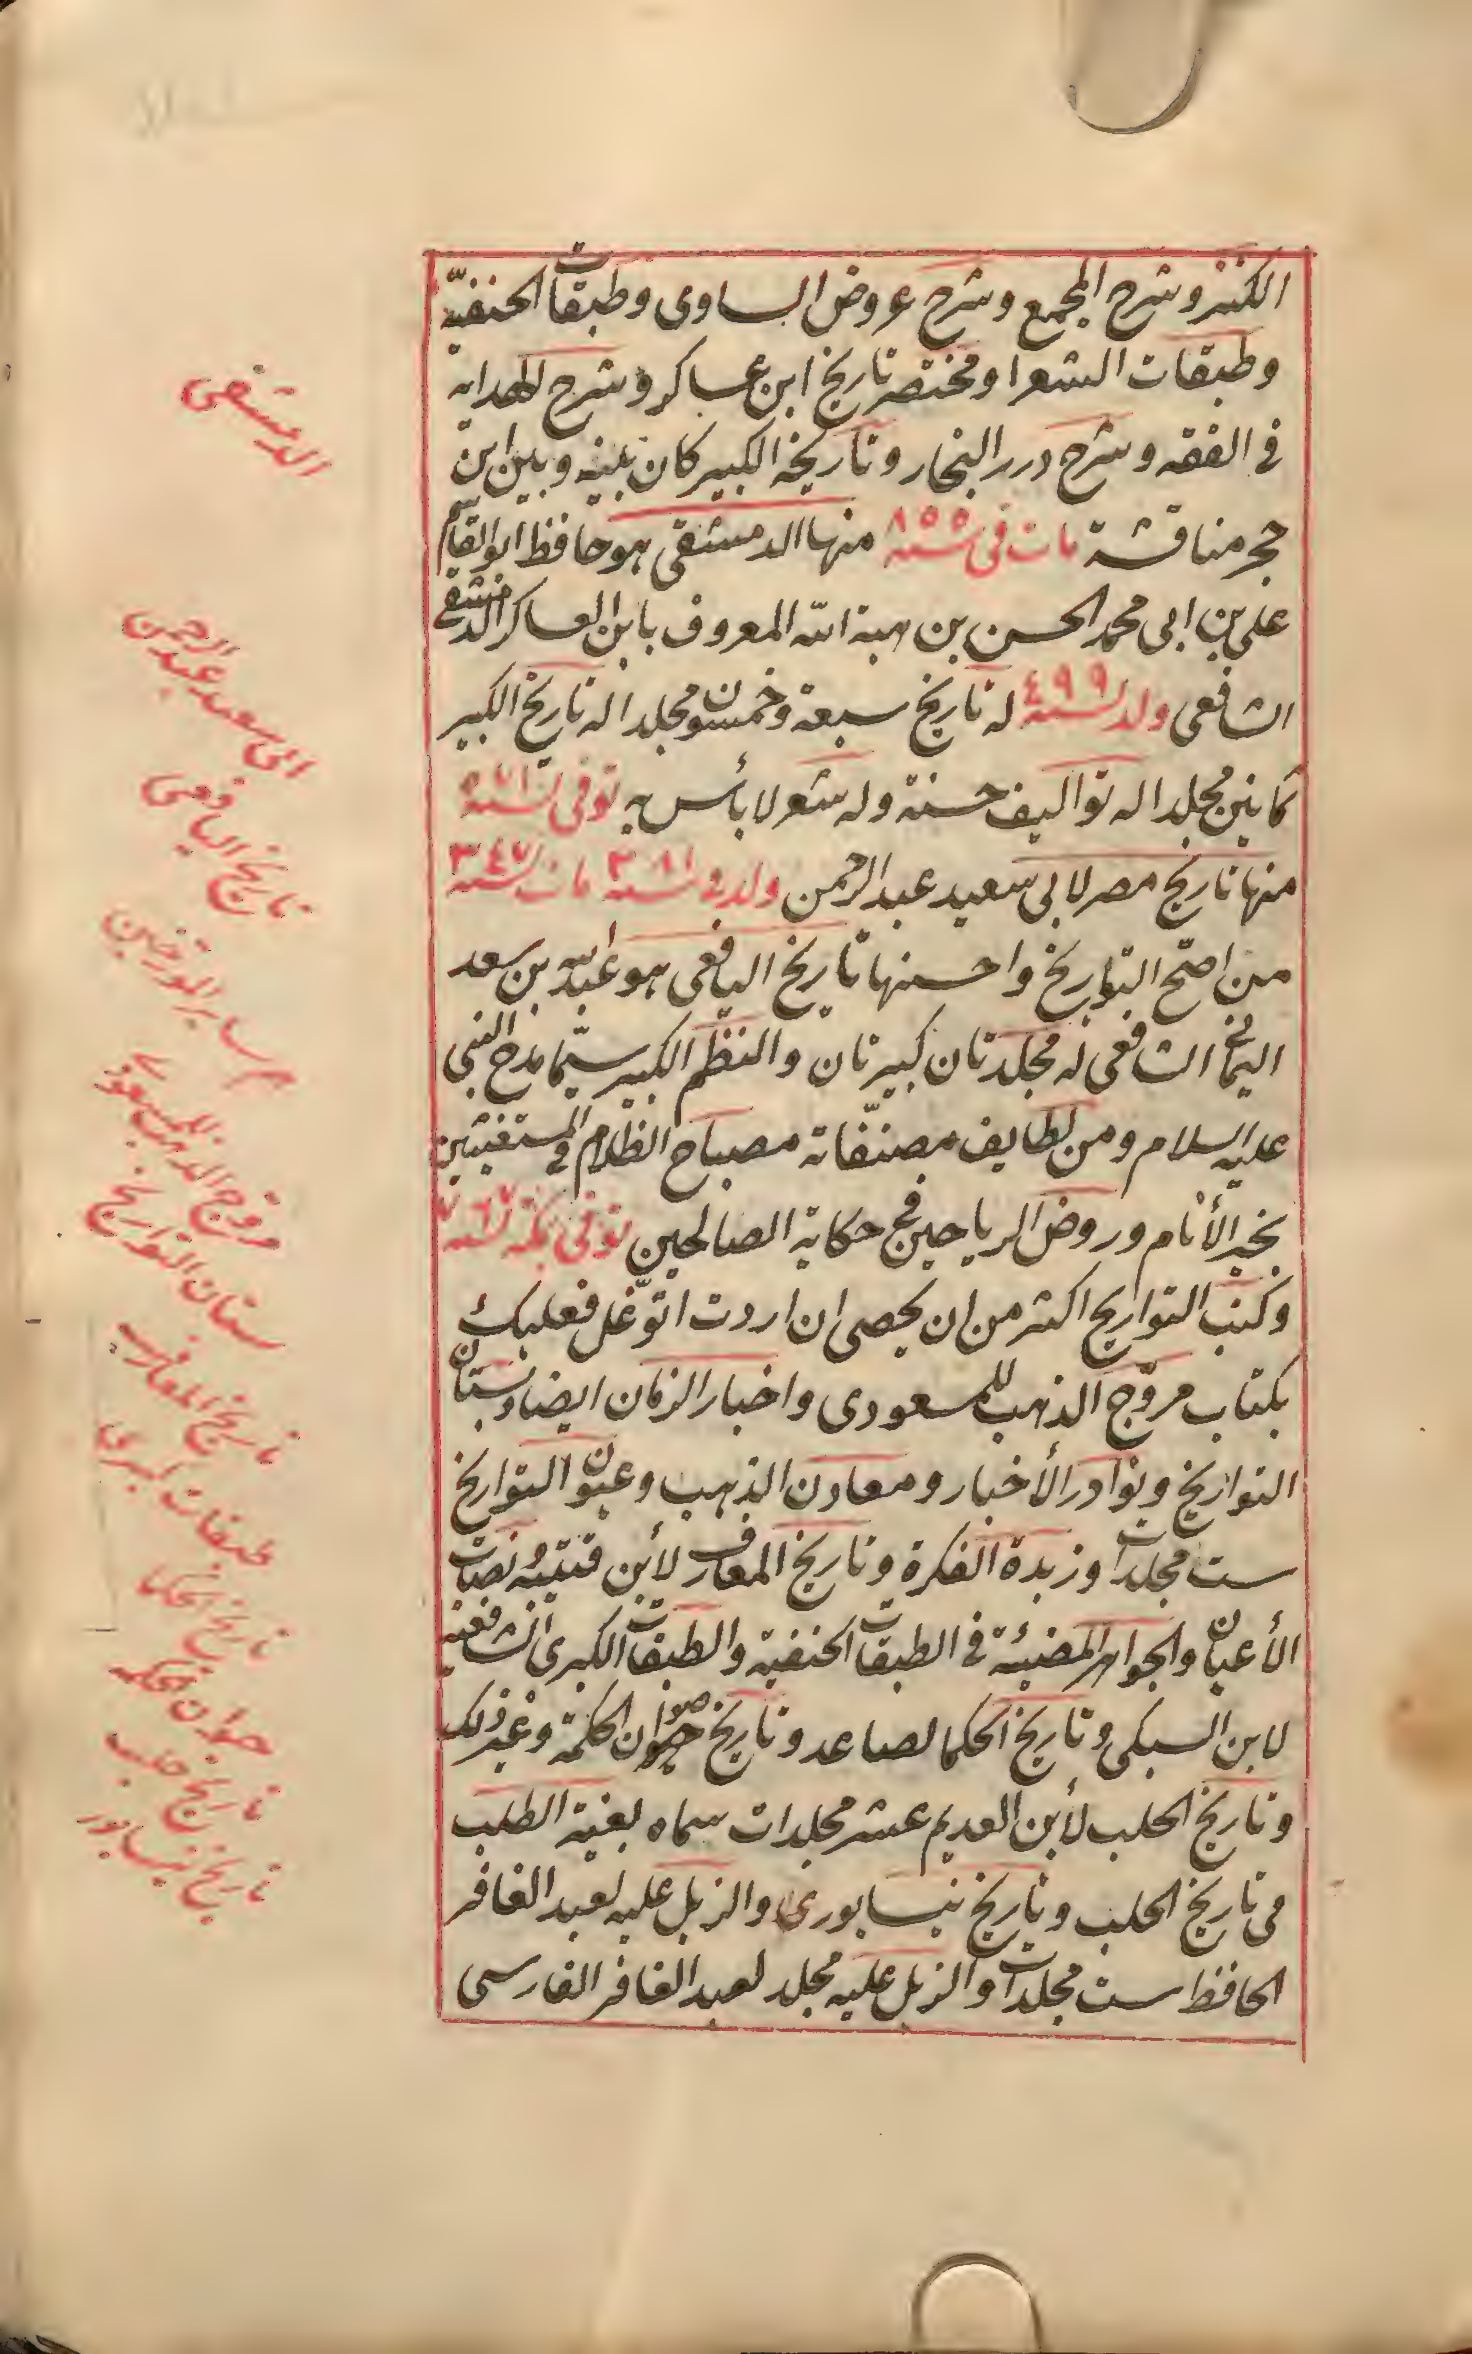 الكنز وشرح المجمع وشرح عروض الساوى وطبقات الحنفيّة
وطبقات الشعرا ومختصر تاريخ ابن عساكر وشرح الهداية
فى الفقه وشرح درر البحار وتاريخه الكبير كان بينه وبين ابن
حجر مناقشة مات فى سنة ٨٥٥ منها الدمشقى هو حافظ ابو القاسم
على بن ابى محمد الحسن بن هبة الله المعروف بابن العساكر الدمشقى
الشافعى ولد سنة ٤٩٩ له تاريخ سبعة وخمسون مجلدا له تاريخ الكبير
ثمانين مجلدا له تواليف حسنة وله شعر لا بأس به توفى سنة
منها تاريخ مصر لابى سعيد عبد الرحمن ولد فى سنة ٣٨١ مات سنة ٣٤٧
من اصحّ التواريخ واحسنها تاريخ اليافعى هو عبد الله بن سعد
اليمانى الشافعى له مجلدتان كبيرتان والنظم الكبير سيّما مدح النبى
عليه السلام ومن لطايف مصنّفاته مصباح الظلام فى المستغيثين
بخير الأنام وروض الرياحين فى حكاية الصالحين توفى بمكة سنة ٧٦٧
وكتب التواريخ اكثر من ان يحصى ان اردت اتوّغل فعليك
بكتاب مروّج الذهب للمسعودى واخبار الزمان ايضا وبستان
التواريخ ونوادر الأخبار ومعادن الذهب وعيون التواريخ
ست مجلدات وزبدة الفكرة وتاريخ المعارف لأبن قتيبه
الأعيان والجواهر المضيئة فى الطبقات الحنفية والطبقات الكبرى الشافعية
لابن السبكى وتاريخ الحكما لصاعد وتاريخ صوان الحكمة وغير ذلك
وتاريخ الحلب لأبن العديم عشر مجلدات سماه بغية الطلب
فى تاريخ الحلب وتاريخ نيسابورى والزيل عليه لعبد الغافر
الحافظ ست مجلدات والزيل عليه مجلد لعبد الغافر الفارسى
الدمشقى
ابى سعيد عبد الرحمن
تاريخ اليافعى
مروج الذهب للمسعودى
بستان التواريخ
تاريخ المعارف
طبقات كبرى
تاريخ الحكما
صوان الحكمة
تاريخ حلب
تاريخ نيسابور